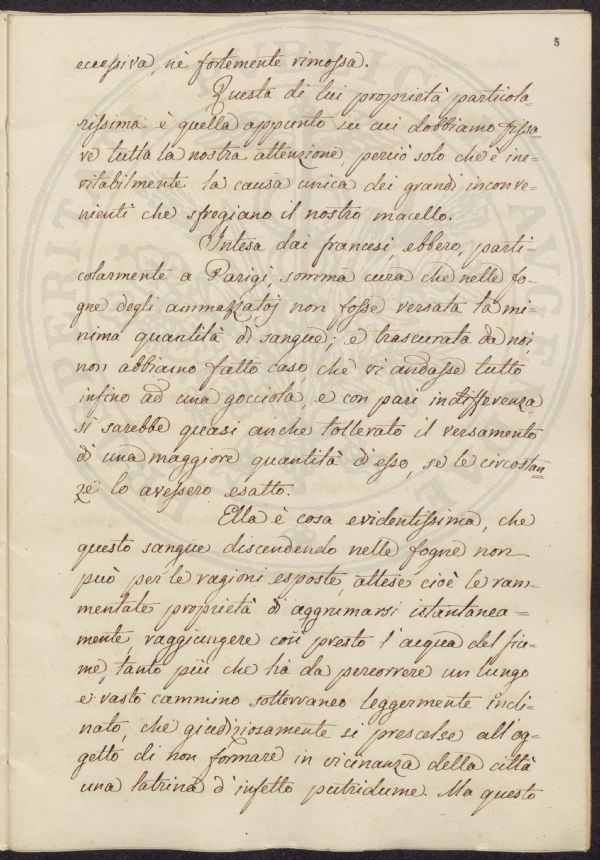 5
eccessiva, nè fortemente rimossa.
Questa di lui proprietà particola=
rissima è quella appunto su cui dobbiamo fissa=
re tutta la nostra attenzione, perciò solo che è ine=
vitabilmente la causa unica dei grandi inconve=
nienti che sfregiano il nostro macello.
Intesa dai francesi, ebbero, parti=
colarmente a Parigi, somma cura che nelle fo=
gne degli ammazzatoj non fosse versata la mi=
nima quantità di sangue; e trascurata da noi,
non abbiamo fatto caso, che vi andasse tutto
infino ad una gocciola, e con pari indifferenza
si sarebbe quasi anche tollerato il versamento
di una maggiore quantità d'esso, se le circostan=
ze lo avessero esatto.
Ella è cosa evidentissima, che
questo sangue discendendo nelle fogne non
può per le ragioni esposte, attese cioè le ram=
mentate proprietà di aggrumarsi istantanea=
mente, raggiungere così presto l'acqua del fiu=
me, tanto più che ha da percorrere un lungo
e vasto cammino sotterraneo leggermente incli=
nato, che giudiziosamente si prescelse all'og=
getto di non formare in vicinanza della città
una latrina d'infetto putridume. Ma questo